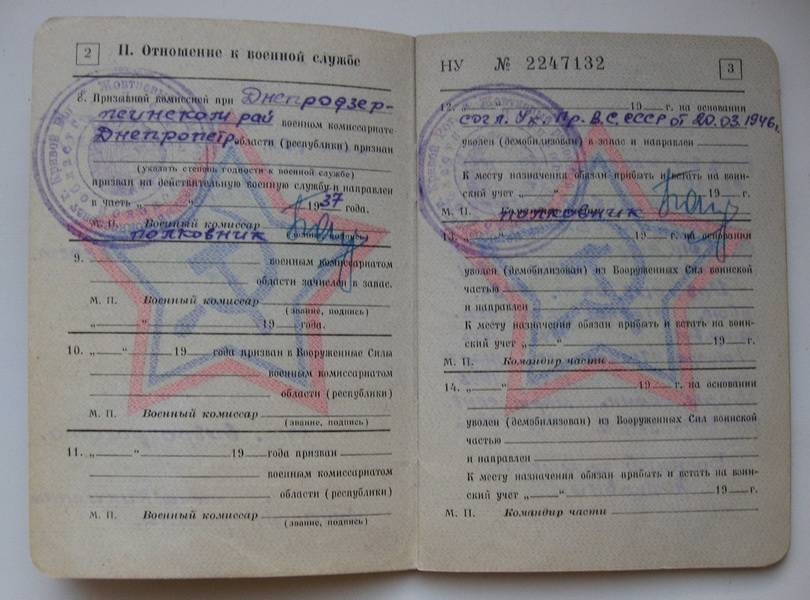 2
II. Отношение к военной службе
8. Призывной комиссией при Днепродзер-
жинском рай военном комиссариате
Днепропетр. области (республики) признан
(указать степень годности к военной службе)
призван на действительную военную службу и направлен
в часть „ “ 1937 года.
М. П. Военный комиссар
полковник
9. военным комиссариатом
области зачислен в запас.
М. П. Военный комиссар
(звание, подпись)
„ “ 19 года.
10. „ “ 19 года призван в Вооруженные Силы
военным комиссариатом
области (республики)
М. П. Военный комиссар
(звание, подпись)
11. „ “ 19 года призван
военным комиссариатом
области (республики)
М. П. Военный комиссар
(звание, подпись)
НУ № 2247132
3
12. 19 г. на основании
согл. Ук. Пр. В.С. СССР от 20.03.1946г.
уволен (демобилизован) в запас и направлен
К месту назначения обязан прибыть и встать на воин-
ский учет „ “ 19 г.
М. П. полковник
13. „ “ 19 г. на основании
уволен (демобилизован) из Вооруженных Сил воинской
частью
и направлен
К месту назначения обязан прибыть и встать на воин-
ский учет „ “ 19 г.
М. П. Командир части
14. „ “ 19 г. на основании
уволен (демобилизован) из Вооруженных Сил воинской
частью
и направлен
К месту назначения обязан прибыть и встать на воин-
ский учет „ “ 19 г.
М. П. Командир части